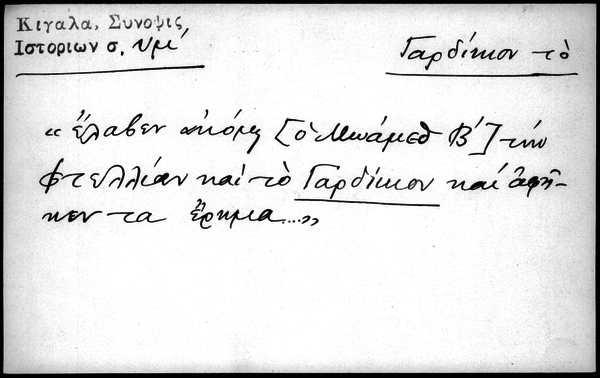 Κιγαλα, Συνοψις
Ιστοριων σ. υμί
Γαρδίκιον τὸ
« ἔλαβεν ἀκόμη [ὁ Μωάμεθ Β΄] τὴν
Φτελλίαν καὶ τὸ Γαρδίκιον καὶ ἀφῆ-
κεν τα ἔρημα...»